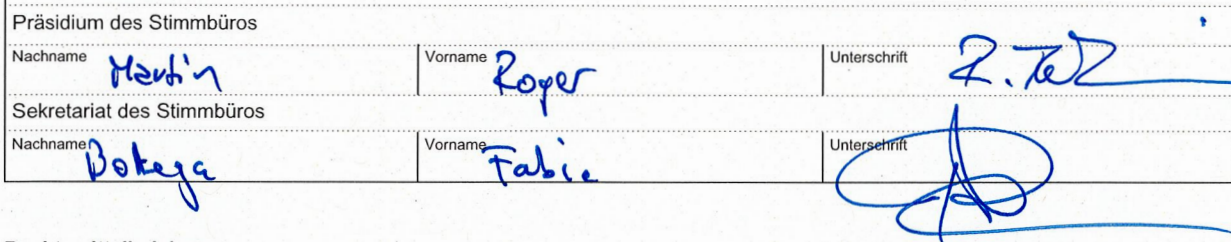 Präsidium des Stimmbüros
Nachname Martin Vorname Roger Unterschrift
Sekretariat des Stimmbüros
Nachname Vorname Unterschrift